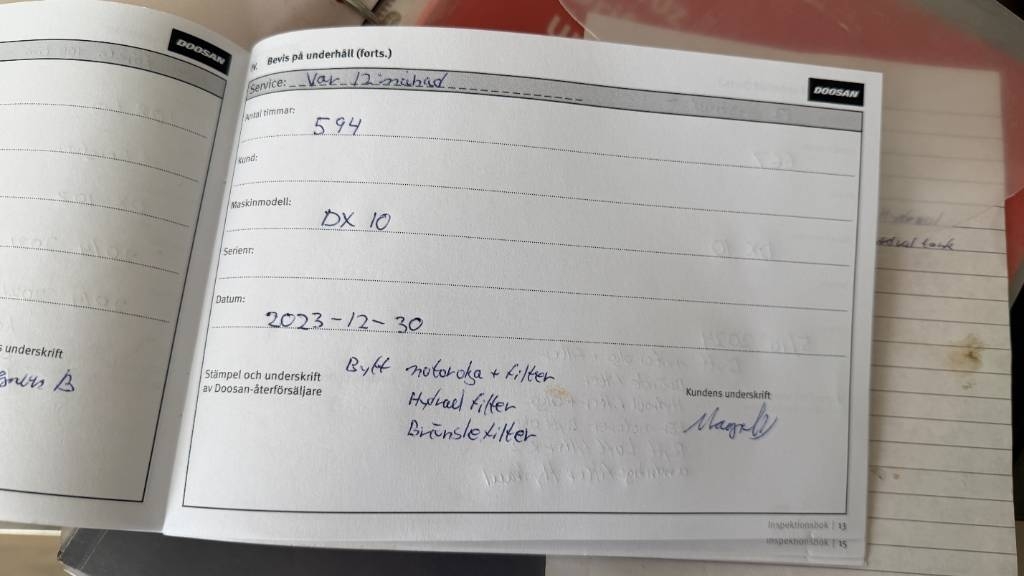 DOOSAN
s underskrift
IV. Bevis på underhåll (forts.)
DOOSAN
Service: Var 12 månad
Antal timmar:
594
Kund:
Maskinmodell:
DX 10
Serienr:
Datum:
2023-12-30
Stämpel och underskrift
av Doosan-återförsäljare
Bytt motorolja + filter
Hydraul filter
Bränslefilter
Kundens underskrift
Inspektionsbok | 13
Inspektionsbok | 15